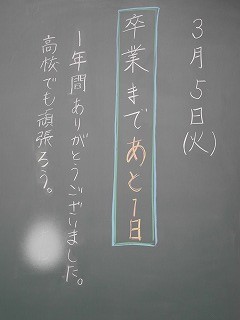 3月5日(火)
卒業まであと1日
1年間ありがとうございました。
高校でも頑張ろう。